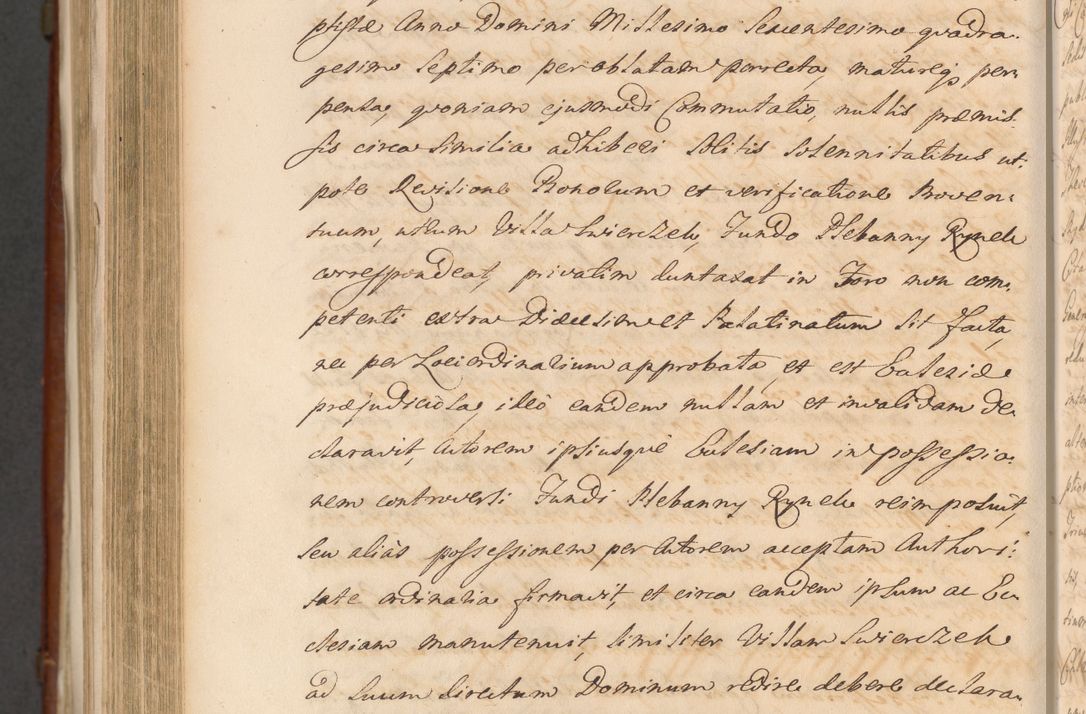 ptistæ Anno Domini Millesimo Sexcentesimo qvadra-
gesimo Septimo per oblatam porrecta, matureq; per-
pensa, qvoniam ejusmodi Commutatio, nullis præmis-
sis circa similia adhiberi solitis solennitatibus ut-
pote Revisione Bonorum et verificatione Proven-
tuum, utrum Villa Swierczek, Fundo Plebanny Rynek
correspondeat, privatim duntaxat in Foro non com-
petenti extra Diæcesim et Palatinatum sit facta,
nec per Loci ordinarium approbata, et est Ecclesiæ
præjudiciosa, ideò eandem nullam et invalidam de-
claravit, Actorem ipsiusque Ecclesiam in possessio-
nem controversi Fundi Plebanny Rynek reimposuit,
seu aliàs possessionem per Actorem acceptam Authori-
tate ordinaria firmavit, et circa eandem ipsum ac Ec-
clesiam manutenuit, similiter Villam Swierczek
ad suum directum Dominum redire debere declara-